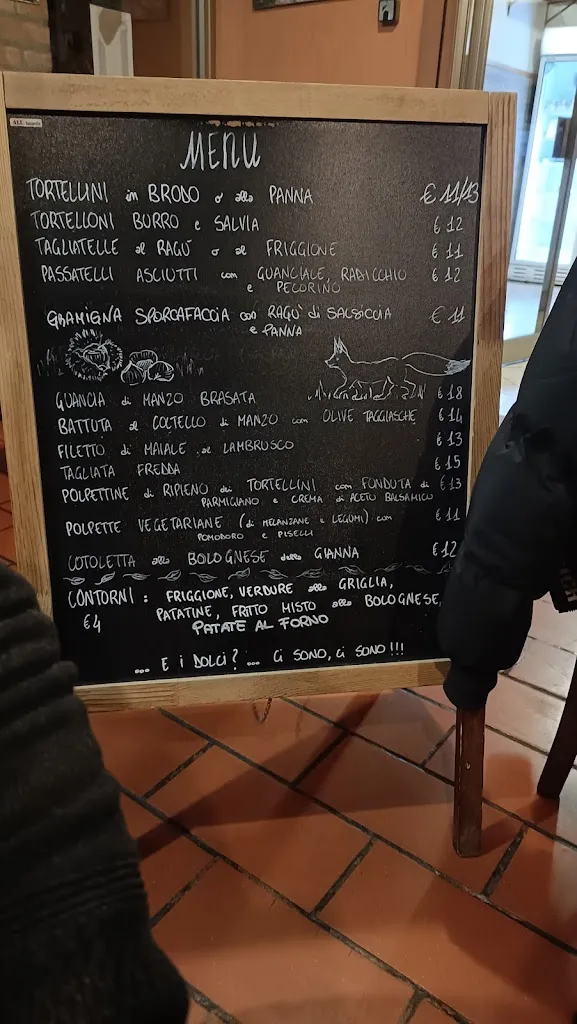 MENU
TORTELLINI in BRODO o alla PANNA € 11/13
TORTELLONI BURRO e SALVIA € 12
TAGLIATELLE al RAGÙ o al FRIGGIONE € 11
PASSATELLI ASCIUTTI con GUANCIALE, RADICCHIO € 12
e PECORINO
GRAMIGNA SPORCAFACCIA con RAGÙ di SALSICCIA € 11
e PANNA
GUANCIA di MANZO BRASATA € 18
BATTUTA al COLTELLO di MANZO con OLIVE TAGGIASCHE € 14
FILETTO di MAIALE al LAMBRUSCO € 13
TAGLIATA FREDDA € 15
POLPETTINE di RIPIENO dei TORTELLINI con FONDUTA di € 13
PARMIGIANO e CREMA di ACETO BALSAMICO
POLPETTE VEGETARIANE (di MELANZANE e LEGUMI) con € 11
POMODORO e PISELLI
COTOLETTA alla BOLOGNESE della GIANNA € 12
CONTORNI: FRIGGIONE, VERDURE alla GRIGLIA,
€4 PATATINE, FRITTO MISTO alla BOLOGNESE,
PATATE AL FORNO
... E i DOLCI? ... Ci SONO, Ci SONO!!!